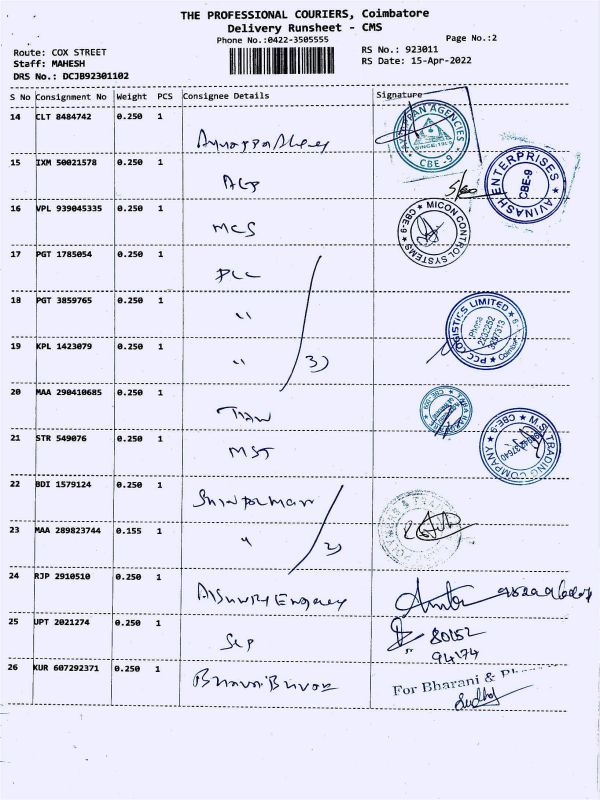 THE PROFESSIONAL COURIERS, Coimbatore
Delivery Runsheet - CMS
Phone No.:0422-3505555
Page No.:2
Route: COX STREET
RS No.: 923011
Staff: MAHESH
RS Date: 15-Apr-2022
DRS No.: DCJB92301102
S No Consignment No Weight PCS Consignee Details Signature
14 CLT 8484742 0.250 1
AYYAPPAN AGENCIES
SINCE:1979
CBE - 9
15 IXM 50021578 0.250 1
AVINASH ENTERPRISES
CBE-9
16 VPL 939045335 0.250 1 MCS
MICON CONTROL SYSTEMS
CBE-9
17 PGT 1785054 0.250 1 PCC
18 PGT 3859765 0.250 1 "
PCC LOGISTICS LIMITED
Phone
2332252
19 KPL 1423079 0.250 1 " 3)
20 MAA 290410685 0.250 1
21 STR 549076 0.250 1 MST
M.S. TRADING COMPANY
CBE-9
22 BDI 1579124 0.250 1
23 MAA 289823744 0.155 1 " 2)
24 RJP 2910510 0.250 1
25 UPT 2021274 0.250 1
80152
94174
26 KUR 607292371 0.250 1
For Bharani &